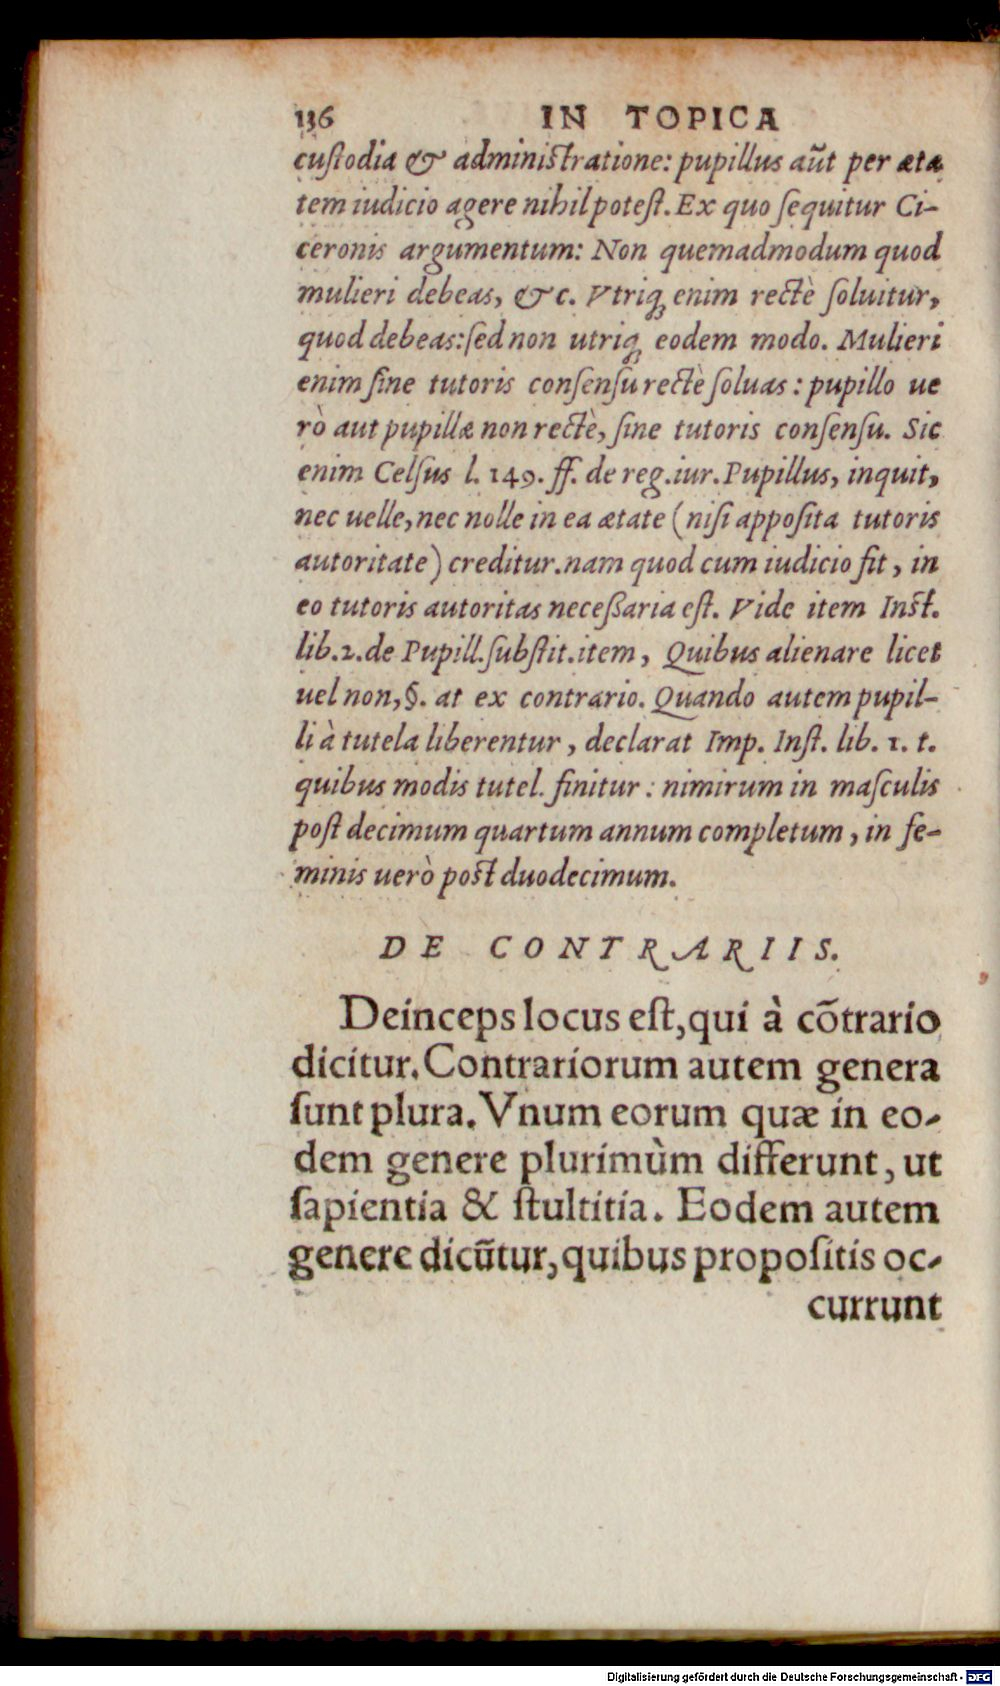 136 IN TOPICA
cuſtodia & adminiſtratione: pupillus aūt per æta
tem iudicio agere nihil poteſt. Ex quo ſequitur Ci-
ceronis argumentum: Non quemadmodum quod
mulieri debeas, &c. Vtriq; enim rectè ſoluitur,
quod debeas: ſed non utriq; eodem modo. Mulieri
enim ſine tutoris conſenſu rectè ſoluas: pupillo ue
rò aut pupillæ non rectè, ſine tutoris conſenſu. Sic
enim Celſus l. 149. ff. de reg. iur. Pupillus, inquit,
nec uelle, nec nolle in ea ætate (niſi appoſita tutoris
autoritate) creditur. nam quod cum iudicio fit, in
eo tutoris autoritas neceßaria eſt. Vide item Inſt.
lib. 2. de Pupill. ſubſtit. item, Quibus alienare licet
uel non, §. at ex contrario. Quando autem pupil-
li à tutela liberentur, declarat Imp. Inſt. lib. 1. t.
quibus modis tutel. finitur: nimirum in maſculis
poſt decimum quartum annum completum, in fe-
minis uerò poſt duodecimum.
DE CONTRARIIS.
Deinceps locus eſt, qui à cōtrario
dicitur. Contrariorum autem genera
ſunt plura. Vnum eorum quæ in eo-
dem genere plurimùm differunt, ut
ſapientia & ſtultitia. Eodem autem
genere dicūtur, quibus propoſitis oc-
currunt
Digitalisierung gefördert durch die Deutsche Forschungsgemeinschaft - DFG